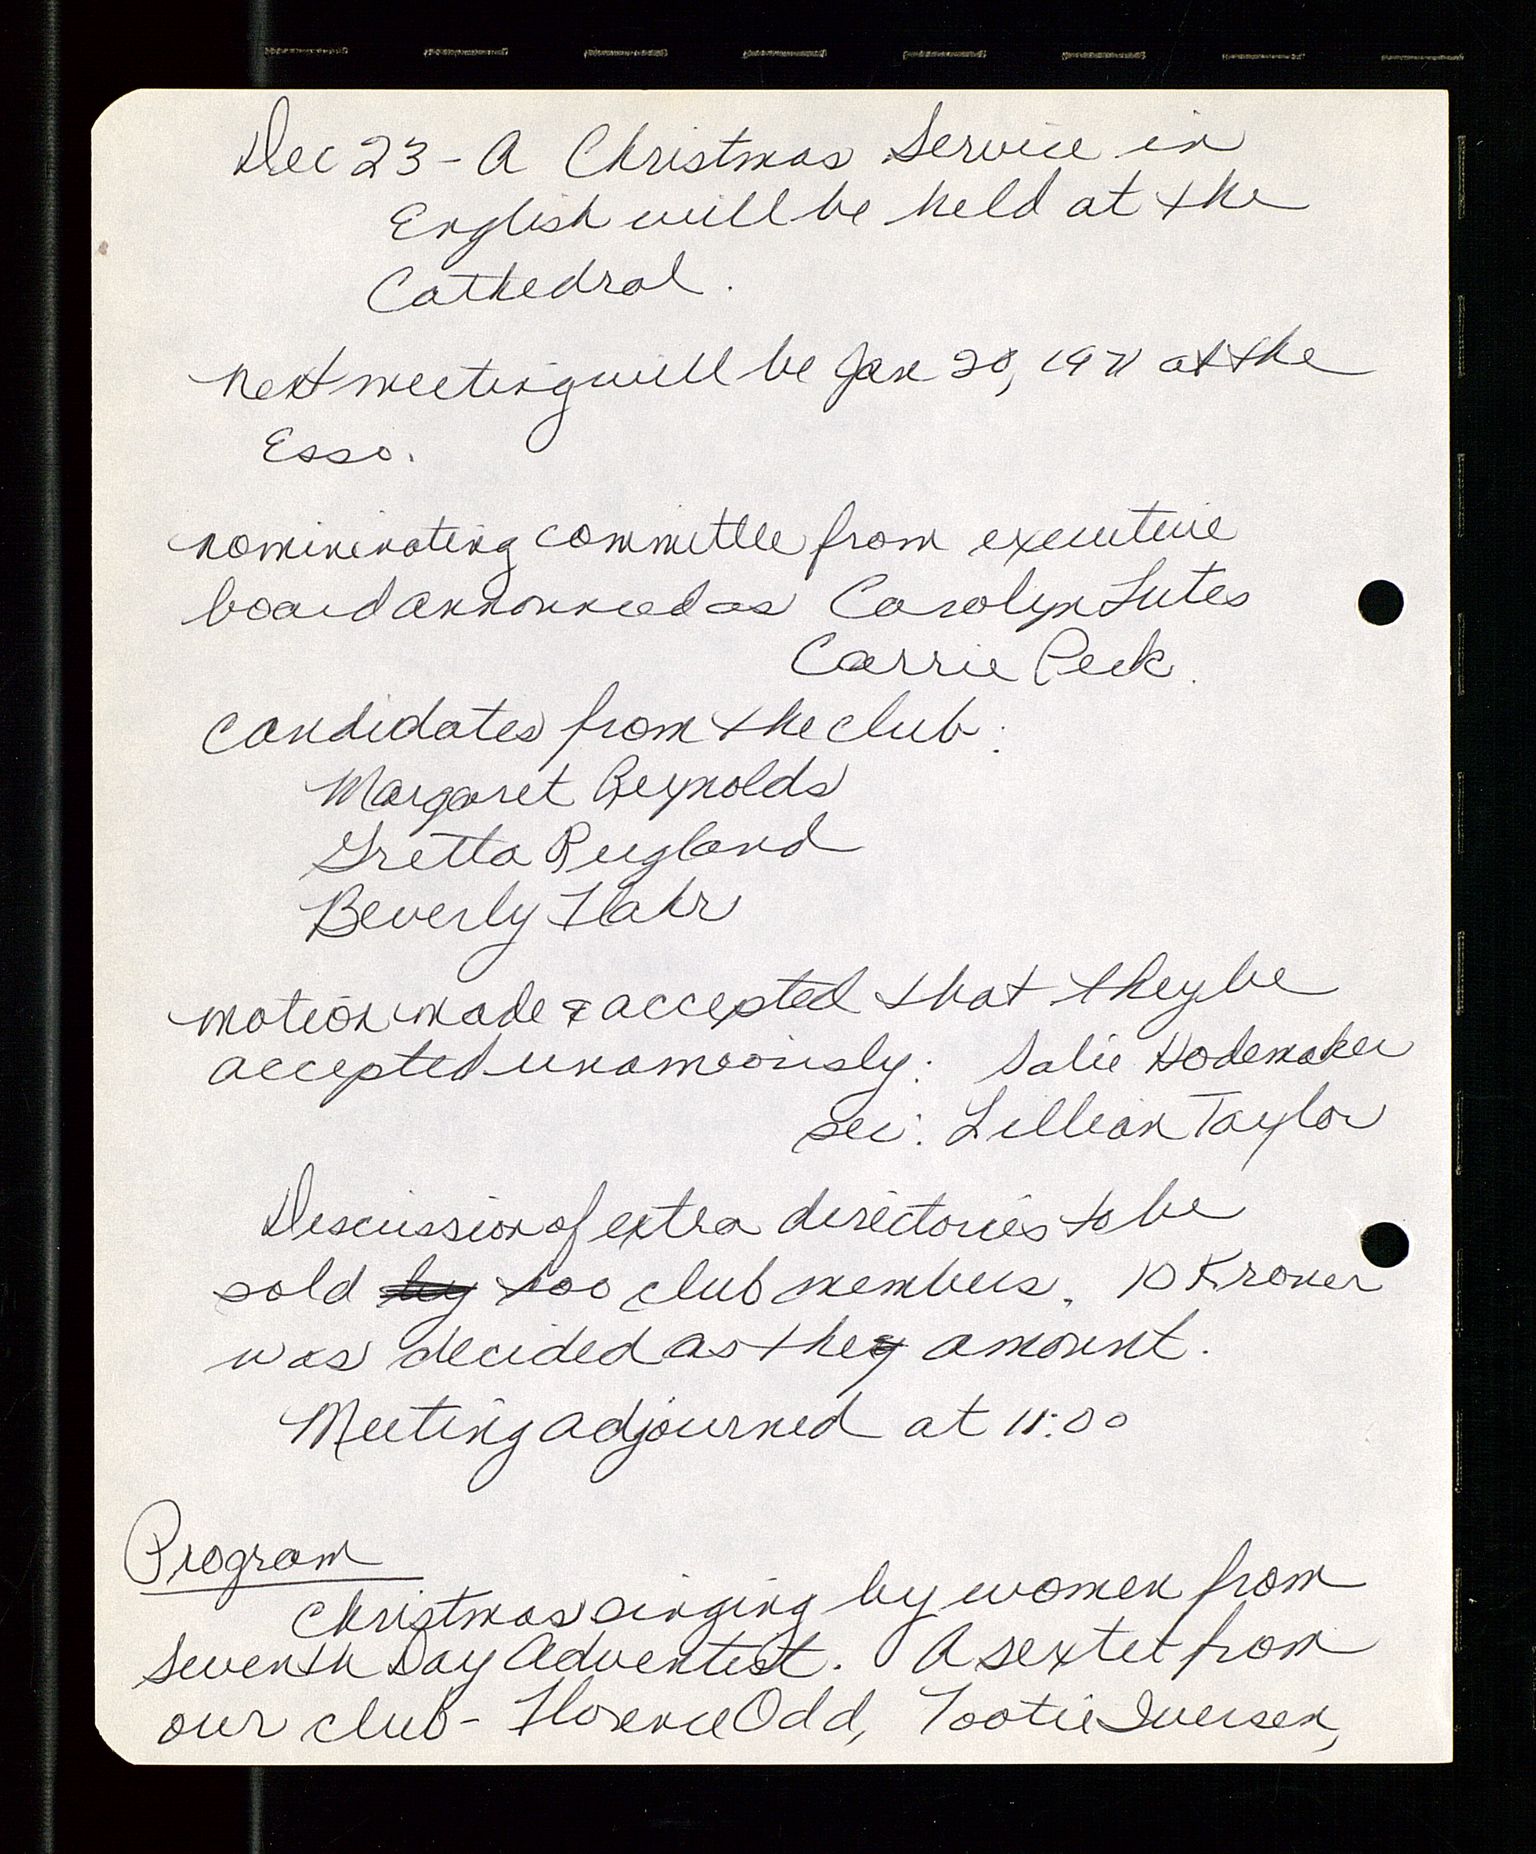 Dec 23 - A Christmas Service in
English will be held at the
Cathedral.
Next meeting will be Jan 20, 1971 at the
Esso.
nominenating committee from executive
board announced as Carolyn Lutes
Carrie Peck.
Candidates from the club:
Margaret Reynolds
Gretta Rugland
Beverly Flahr
motion made & accepted that they be
accepted unamoously: Salie Hodemaker
sec: Lillian Taylor
Discussion of extra directories to be
sold by too club members. 10 Kroner
was decided as the amount.
Meeting adjourned at 11:00
Program
Christmas singing by women from
Seventh Day Adventist. A sextet from
our club - Florence Odd, Tootie Iversen,